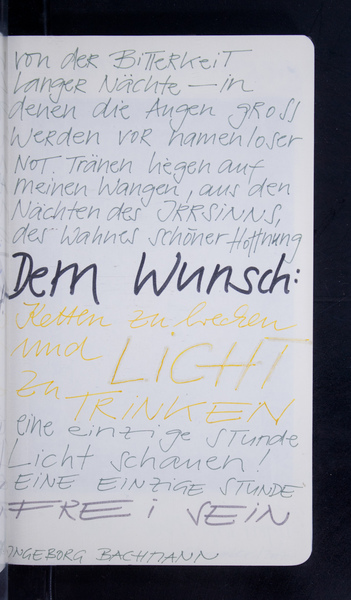 von der BITTERKEIT
langer Nächte — in
denen die Augen gROSS
Werden VOR namenloser
NOT. Tränen liegen auf
meinen Wangen, aus den
Nächten des IRRSINNS,
des Wahnes schöner Hoffnung
Dem Wunsch:
Ketten zu brechen
und LICHT
zu TRINKEN
eine einzige STunde
Licht schauen!
EINE EINZIGE STUNDE
FREi SEiN
INGEBORG BACHMANN